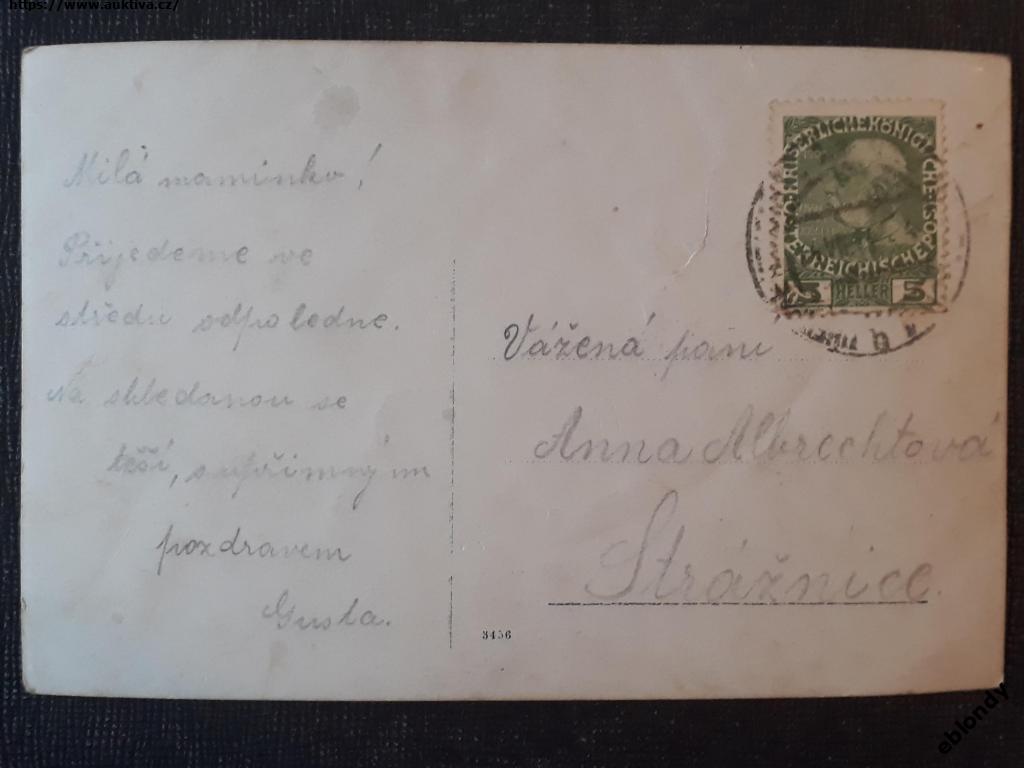 https://www.auktiva.cz/
Milá maminko!
Přijedeme ve
středu odpoledne.
Na shledanou se
těší, s upřímným
pozdravem
Gusta.
KAISERLICHEKÖNIGLICHE
ÖSTERREICHISCHEPOST
5 HELLER 5
Vážená paní
Anna Albrechtová
Strážnice.
3456
eblondy